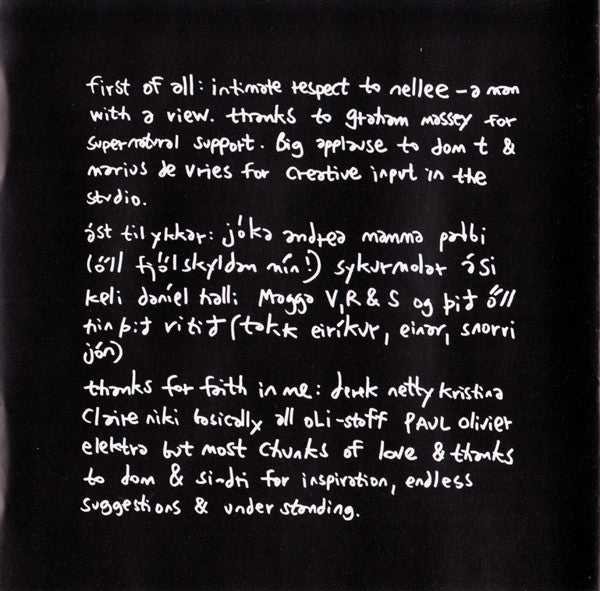 first of all: intimate respect to nellee - a man
with a view. thanks to graham massey for
supernatural support. Big applause to dom t &
marius de vries for creative input in the
studio.
ást til ykkar: jóka andrea mamma pabbi
(öll fjölskyldan mín!) sykurmolar ási
keli daníel halli Magga V, R & S og þið öll
hin þið vitið (takk eiríkur, einar, snorri
jón)
thanks for faith in me: derek netty kristina
Claire niki basically all OLI-stoff PAUL olivier
elektra but most chunks of love & thanks
to dom & sindri for inspiration, endless
suggestions & understanding.